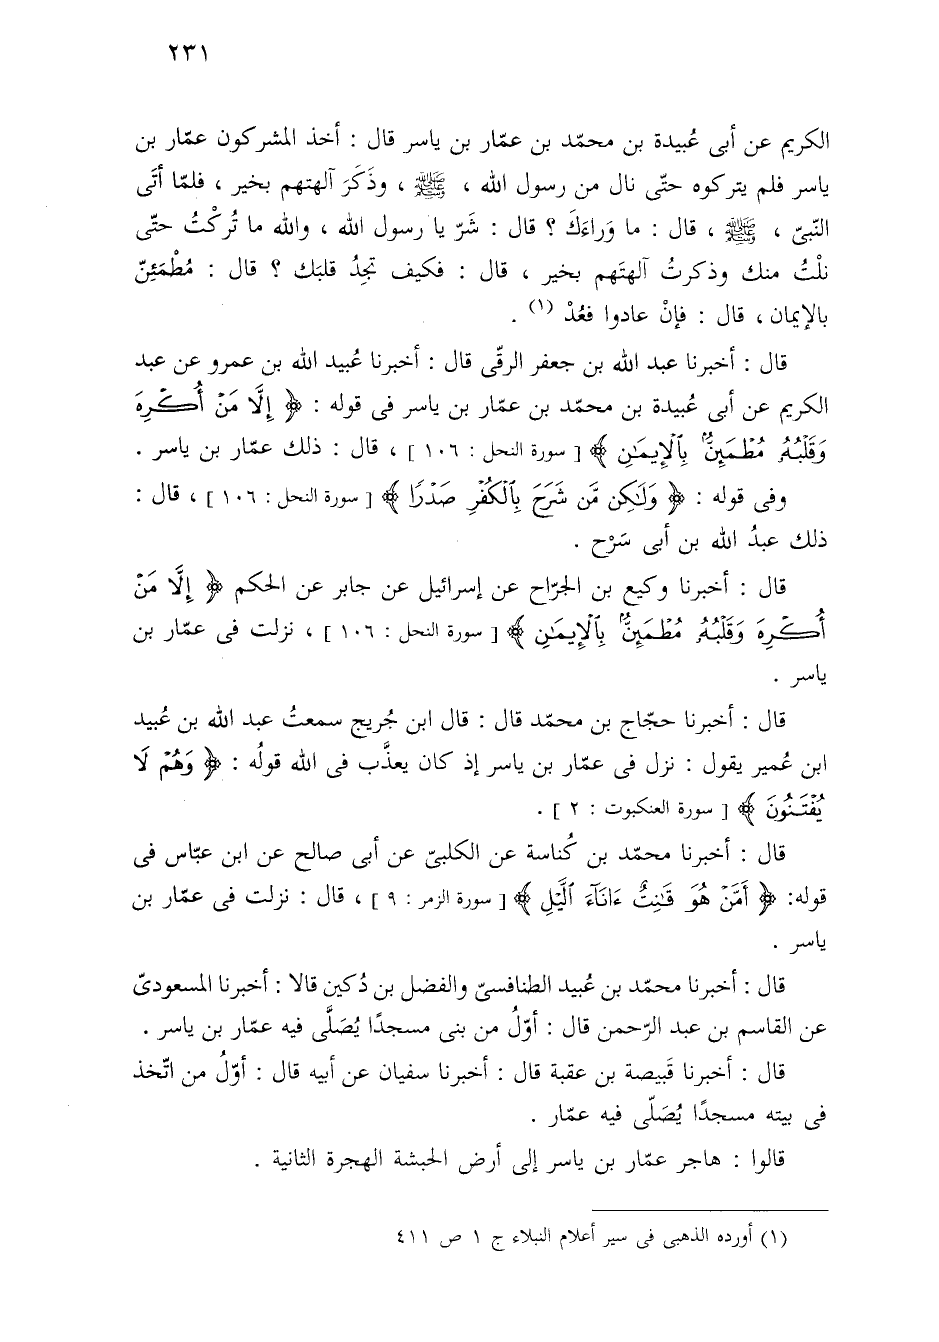 ٢٣١
الكريم عن أبى عُبيدة بن محمّد بن عمّار بن ياسر قال : أخذ المشركون عمّار بن
ياسر فلم يتركوه حتّى نال من رسول الله ، ﷺ ، وذَكَرَ آلهتهم بخير ، فلمّا أتَى
النّبىّ ، ﷺ ، قال : ما وَراءَكَ ؟ قال : شَرّ يا رسول الله ، والله ما تُركْتُ حتّى
نلْتُ منك وذكرتُ آلهتَهم بخير ، قال : فكيف تجِدُ قلبَك ؟ قال : مُطْمَئِنّ
بالإيمان ، قال : فإنْ عادوا فعُدْ (١) .
قال : أخبرنا عبد الله بن جعفر الرقّى قال : أخبرنا عُبيد الله بن عمرو عن عبد
الكريم عن أبى عُبيدة بن محمّد بن عمّار بن ياسر فى قوله : ﴿ إِلَّا مَنْ أُكْرِهَ
وَقَلْبُهُۥ مُطْمَئِنٌّۢ بِٱلْإِيمَٰنِ ﴾ [ سورة النحل : ١٠٦ ] ، قال : ذلك عمّار بن ياسر .
وفى قوله : ﴿ وَلَٰكِن مَّن شَرَحَ بِٱلْكُفْرِ صَدْرًا ﴾ [ سورة النحل : ١٠٦ ] ، قال :
ذلك عبدُ الله بن أبى سَرْح .
قال : أخبرنا وكيع بن الجرّاح عن إسرائيل عن جابر عن الحكم ﴿ إِلَّا مَنْ
أُكْرِهَ وَقَلْبُهُۥ مُطْمَئِنٌّۢ بِٱلْإِيمَٰنِ ﴾ [ سورة النحل : ١٠٦ ] ، نزلت فى عمّار بن
ياسر .
قال : أخبرنا حجّاج بن محمّد قال : قال ابن جُريج سمعتُ عبد الله بن عُبيد
ابن عُمير يقول : نزل فى عمّار بن ياسر إذ كان يعذَّب فى الله قولُه : ﴿ وَهُمْ لَا
يُفْتَنُونَ ﴾ [ سورة العنكبوت : ٢ ] .
قال : أخبرنا محمّد بن كُناسة عن الكلبىّ عن أبى صالح عن ابن عبّاس فى
قوله: ﴿ أَمَّنْ هُوَ قَٰنِتٌ ءَانَآءَ ٱلَّيْلِ ﴾ [ سورة الزمر : ٩ ] ، قال : نزلت فى عمّار بن
ياسر .
قال : أخبرنا محمّد بن عُبيد الطنافسىّ والفضل بن دُكين قالا : أخبرنا المسعودىّ
عن القاسم بن عبد الرّحمن قال : أوّلُ من بنى مسجدًا يُصَلَّى فيه عمّار بن ياسر .
قال : أخبرنا قَبيصة بن عقبة قال : أخبرنا سفيان عن أبيه قال : أوّلُ من اتّخذ
فى بيته مسجدًا يُصَلّى فيه عمّار .
قالوا : هاجر عمّار بن ياسر إلى أرض الحبشة الهجرة الثانية .
(١) أورده الذهبى فى سير أعلام النبلاء ج ١ ص ٤١١